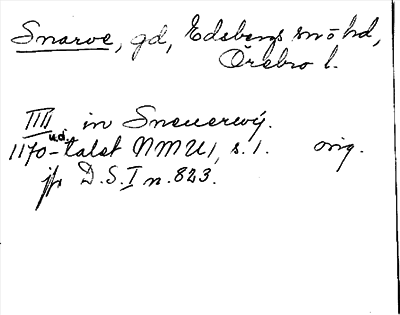 Snarve, gd, Edsbergs sn o hd,
Örebro l.
IIII in Sneuerwij.
1170-talet u.å. NMU 1, s. 1. orig.
jfr D.S. I n. 823.